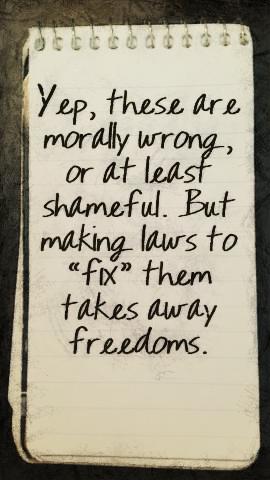 Yep, these are
morally wrong,
or at least
shameful. But
making laws to
“fix” them
takes away
freedoms.